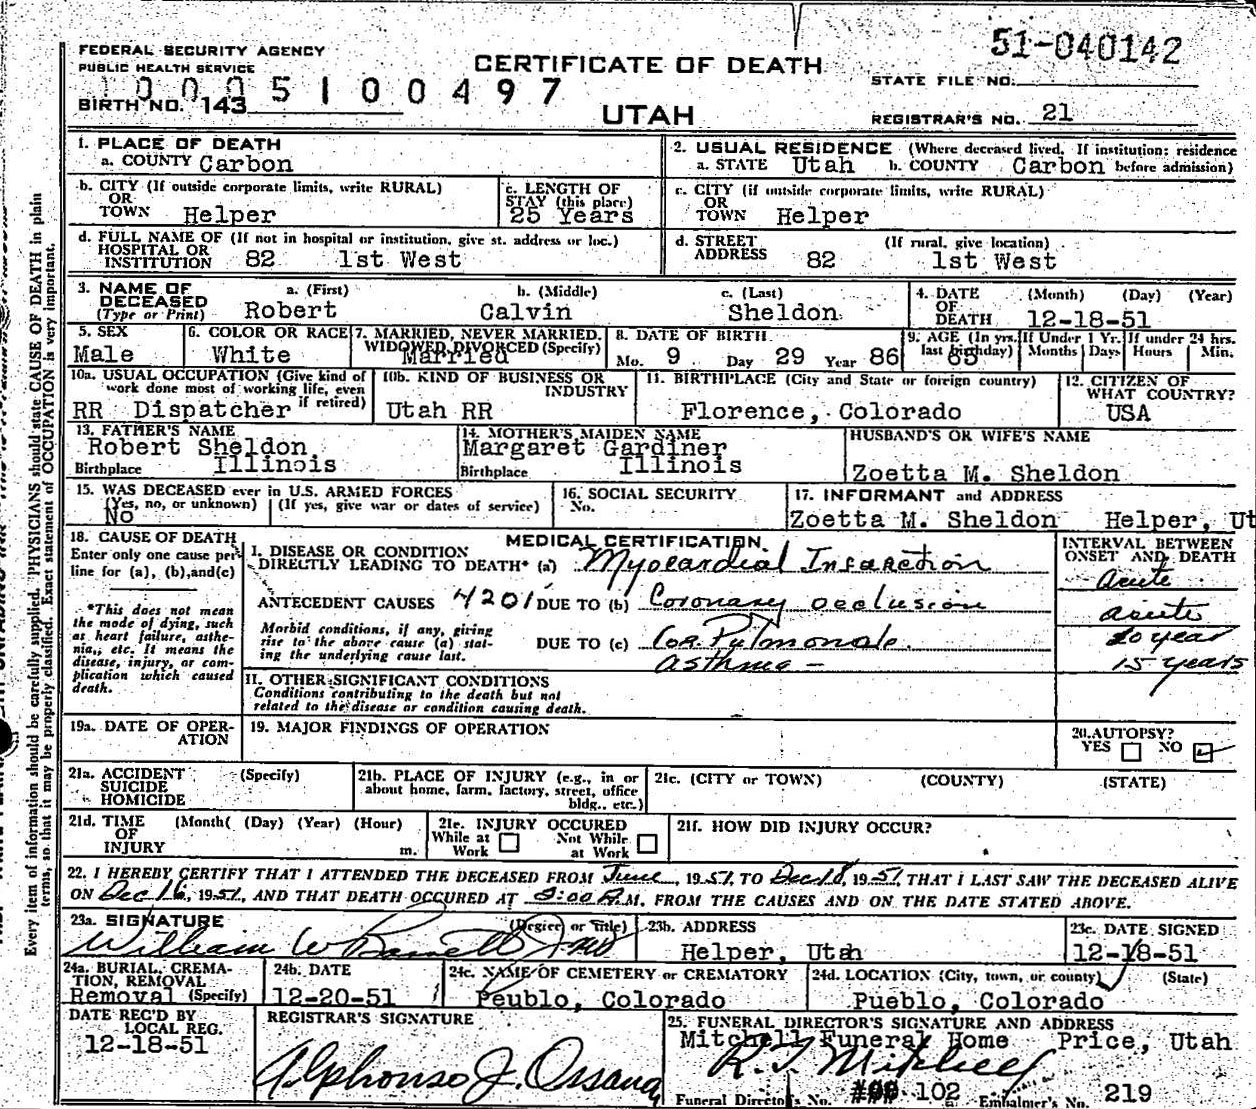 51-040142
FEDERAL SECURITY AGENCY
PUBLIC HEALTH SERVICE
CERTIFICATE OF DEATH
STATE FILE NO.
1 0 0 0 5 1 0 0 4 9 7
BIRTH NO. 143
UTAH
REGISTRAR'S NO. 21
1. PLACE OF DEATH
a. COUNTY Carbon
2. USUAL RESIDENCE (Where deceased lived. If institution: residence
a. STATE Utah b. COUNTY Carbon before admission)
b. CITY (If outside corporate limits, write RURAL)
OR
TOWN Helper
c. LENGTH OF
STAY (this place)
25 Years
c. CITY (if outside corporate limits, write RURAL)
OR
TOWN Helper
d. FULL NAME OF (If not in hospital or institution, give st. address or loc.)
HOSPITAL OR
INSTITUTION 82 1st West
d. STREET (If rural, give location)
ADDRESS 82 1st West
3. NAME OF a. (First) b. (Middle) c. (Last)
DECEASED
(Type or Print) Robert Calvin Sheldon
4. DATE (Month) (Day) (Year)
OF
DEATH 12-18-51
5. SEX
Male
6. COLOR OR RACE
White
7. MARRIED, NEVER MARRIED,
WIDOWED, DIVORCED (Specify)
Married
8. DATE OF BIRTH
Mo. 9 Day 29 Year 86
9. AGE (In yrs. last birthday)
65
If Under 1 Yr.
Months Days
If under 24 hrs.
Hours Min.
10a. USUAL OCCUPATION (Give kind of
work done most of working life, even
if retired)
RR Dispatcher
10b. KIND OF BUSINESS OR
INDUSTRY
Utah RR
11. BIRTHPLACE (City and State or foreign country)
Florence, Colorado
12. CITIZEN OF
WHAT COUNTRY?
USA
13. FATHER'S NAME
Robert Sheldon
Birthplace Illinois
14. MOTHER'S MAIDEN NAME
Margaret Gardiner
Birthplace Illinois
HUSBAND'S OR WIFE'S NAME
Zoetta M. Sheldon
15. WAS DECEASED ever in U.S. ARMED FORCES
(Yes, no, or unknown) (If yes, give war or dates of service)
No
16. SOCIAL SECURITY
No.
17. INFORMANT and ADDRESS
Zoetta M. Sheldon Helper, Ut
18. CAUSE OF DEATH
Enter only one cause per
line for (a), (b), and (c)
*This does not mean
the mode of dying, such
as heart failure, asthe-
nia, etc. It means the
disease, injury, or com-
plication which caused
death.
MEDICAL CERTIFICATION
I. DISEASE OR CONDITION
DIRECTLY LEADING TO DEATH* (a) Myocardial Infarction
ANTECEDENT CAUSES 4201 DUE TO (b) Coronary occlusion
Morbid conditions, if any, giving
rise to the above cause (a) stat-
ing the underlying cause last.
DUE TO (c) Cor Pulmonale
asthma -
INTERVAL BETWEEN
ONSET AND DEATH
acute
acute
20 year
15 years
II. OTHER SIGNIFICANT CONDITIONS
Conditions contributing to the death but not
related to the disease or condition causing death.
19a. DATE OF OPER-
ATION
19. MAJOR FINDINGS OF OPERATION
20. AUTOPSY?
YES NO
21a. ACCIDENT (Specify)
SUICIDE
HOMICIDE
21b. PLACE OF INJURY (e.g., in or
about home, farm, factory, street, office
bldg., etc.)
21c. (CITY or TOWN) (COUNTY) (STATE)
21d. TIME (Month( (Day) (Year) (Hour)
OF
INJURY m.
21e. INJURY OCCURED
While at Work Not While at Work
21f. HOW DID INJURY OCCUR?
22. I HEREBY CERTIFY THAT I ATTENDED THE DECEASED FROM June, 1951, TO Dec 18, 1951, THAT I LAST SAW THE DECEASED ALIVE
ON Dec 16, 1951, AND THAT DEATH OCCURED AT 2:00 A.M. FROM THE CAUSES AND ON THE DATE STATED ABOVE.
23a. SIGNATURE (Degree or Title)
William W MD
23b. ADDRESS
Helper, Utah
23c. DATE SIGNED
12-18-51
24a. BURIAL, CREMA-
TION, REMOVAL
Removal (Specify)
24b. DATE
12-20-51
24c. NAME OF CEMETERY or CREMATORY
Peublo, Colorado
24d. LOCATION (City, town, or county) (State)
Pueblo, Colorado
DATE REC'D BY
LOCAL REG.
12-18-51
REGISTRAR'S SIGNATURE
Alphonso J. Ossana
25. FUNERAL DIRECTOR'S SIGNATURE AND ADDRESS
Mitchell Funeral Home Price, Utah
R. T. Mitchell
Funeral Director's No. 102 Embalmer's No. 219
Every item of information should be carefully supplied. PHYSICIANS should state CAUSE OF DEATH in plain
terms, so that it may be properly classified. Exact statement of OCCUPATION is very important.